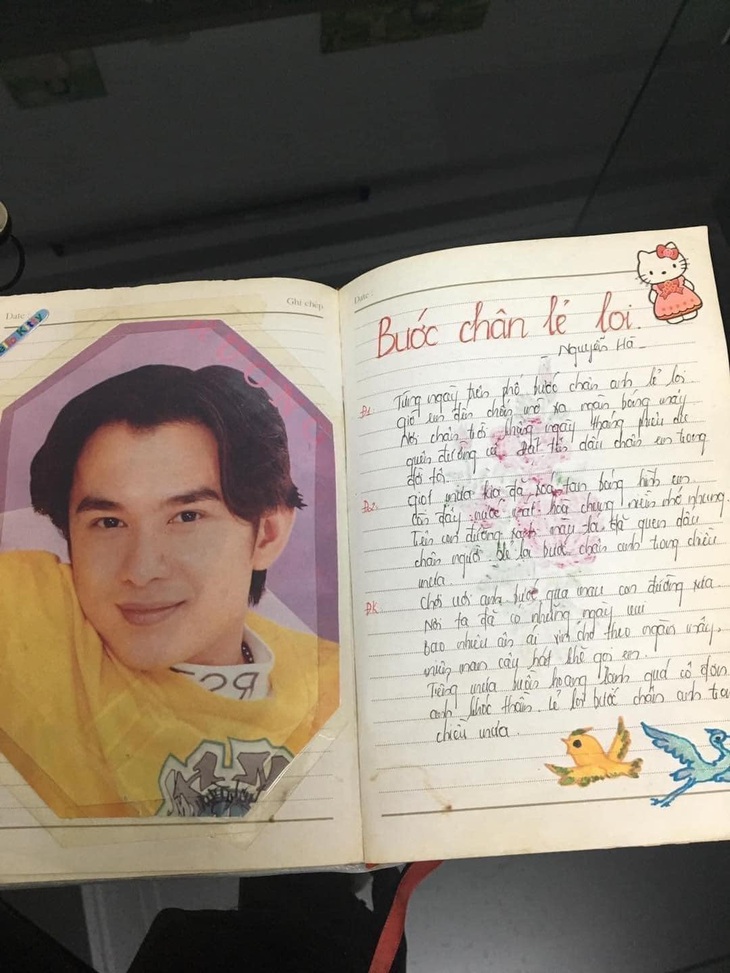 Date
Ghi chép
Date
Bước chân lẻ loi.
Nguyễn Hà
Đ1. Từng ngày trên phố bước chân anh lẻ loi
gió em đến chốn mô xa ngàn bóng mây
Nơi chân trời không ngày tháng phiêu du
quên đường cũ dấu chân em trong
đời tôi.
Đ2. giọt mưa kia đã xoá tan bóng hình em.
còn đây nước mắt hoà chung niềm nhớ nhung.
Tên con đường xanh màu lá đã quen dấu
chân người lẻ loi bước chân anh trong chiều
mưa.
ĐK: anh bước qua mau con đường xưa.
Nơi ta đã có những ngày vui
bao nhiêu ân ái xin chớ theo ngàn mây.
miên man câu hát khẽ gọi em.
Tiếng mưa buồn hoang lạnh quá cô đơn
anh khóc thầm. lẻ loi bước chân anh tro
chiều mưa.